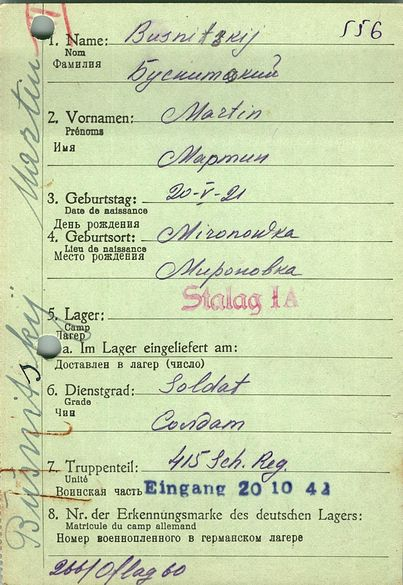 556
1. Name: Busnitskij
Nom
Фамилия
Буснитский
2. Vornamen: Martin
Prénoms
Имя
Мартин
3. Geburtstag: 20-V-21
Date de naissance
День рождения
4. Geburtsort: Mironowka
Lieu de naissance
Место рождения
Мироновка
Stalag IA
5. Lager:
Camp
Лагерь
a. Im Lager eingeliefert am:
Доставлен в лагерь (число)
6. Dienstgrad: Soldat
Grade
Чин
Солдат
7. Truppenteil: 415 Sch. Reg.
Unité
Воинская часть Eingang 20 10 42
8. Nr. der Erkennungsmarke des deutschen Lagers:
Matricule du camp allemand
Номер военнопленного в германском лагере
2661/Oflag 60
Busnitskij Martin